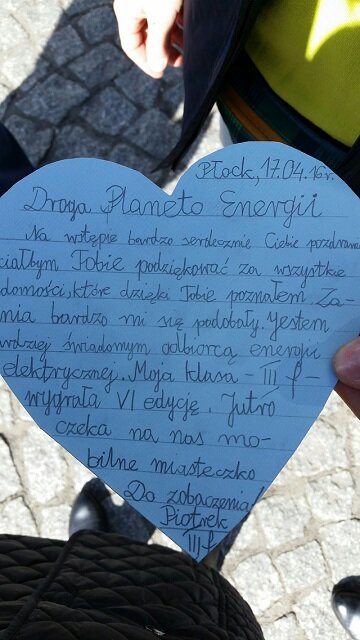 Płock, 17.04.16r.
Droga Planeto Energii
Na wstępie bardzo serdecznie Ciebie pozdraw
ciałbym Tobie podziękować za wszystkie
domości, które dzięki Tobie poznałem. Za-
nia bardzo mi się podobały. Jestem
ardziej świadomym odbiorcą energii
elektrycznej. Moja klasa – III f –
wygrała VI edycję. Jutro
czeka na nas mo-
bilne miasteczko
Do zobaczenia!
Piotrek
III f